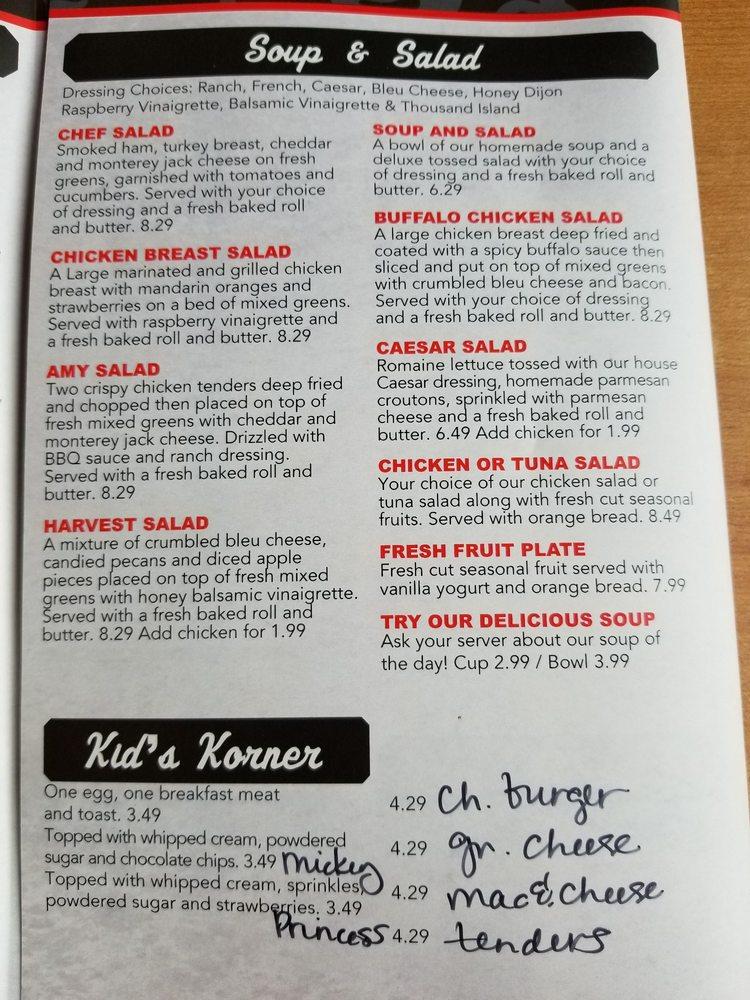 Soup & Salad
Dressing Choices: Ranch, French, Caesar, Bleu Cheese, Honey Dijon
Raspberry Vinaigrette, Balsamic Vinaigrette & Thousand Island
CHEF SALAD
Smoked ham, turkey breast, cheddar
and monterey jack cheese on fresh
greens, garnished with tomatoes and
cucumbers. Served with your choice
of dressing and a fresh baked roll
and butter. 8.29
CHICKEN BREAST SALAD
A Large marinated and grilled chicken
breast with mandarin oranges and
strawberries on a bed of mixed greens.
Served with raspberry vinaigrette and
a fresh baked roll and butter. 8.29
AMY SALAD
Two crispy chicken tenders deep fried
and chopped then placed on top of
fresh mixed greens with cheddar and
monterey jack cheese. Drizzled with
BBQ sauce and ranch dressing.
Served with a fresh baked roll and
butter. 8.29
HARVEST SALAD
A mixture of crumbled bleu cheese,
candied pecans and diced apple
pieces placed on top of fresh mixed
greens with honey balsamic vinaigrette.
Served with a fresh baked roll and
butter. 8.29 Add chicken for 1.99
SOUP AND SALAD
A bowl of our homemade soup and a
deluxe tossed salad with your choice
of dressing and a fresh baked roll and
butter. 6.29
BUFFALO CHICKEN SALAD
A large chicken breast deep fried and
coated with a spicy buffalo sauce then
sliced and put on top of mixed greens
with crumbled bleu cheese and bacon.
Served with your choice of dressing
and a fresh baked roll and butter. 8.29
CAESAR SALAD
Romaine lettuce tossed with our house
Caesar dressing, homemade parmesan
croutons, sprinkled with parmesan
cheese and a fresh baked roll and
butter. 6.49 Add chicken for 1.99
CHICKEN OR TUNA SALAD
Your choice of our chicken salad or
tuna salad along with fresh cut seasonal
fruits. Served with orange bread. 8.49
FRESH FRUIT PLATE
Fresh cut seasonal fruit served with
vanilla yogurt and orange bread. 7.99
TRY OUR DELICIOUS SOUP
Ask your server about our soup of
the day! Cup 2.99 / Bowl 3.99
Kid's Korner
One egg, one breakfast meat
and toast. 3.49
Topped with whipped cream, powdered
sugar and chocolate chips. 3.49 Mickey
Topped with whipped cream, sprinkles,
powdered sugar and strawberries. 3.49
Princess
4.29 Ch. burger
4.29 gr. cheese
4.29 mac & cheese
4.29 tenders